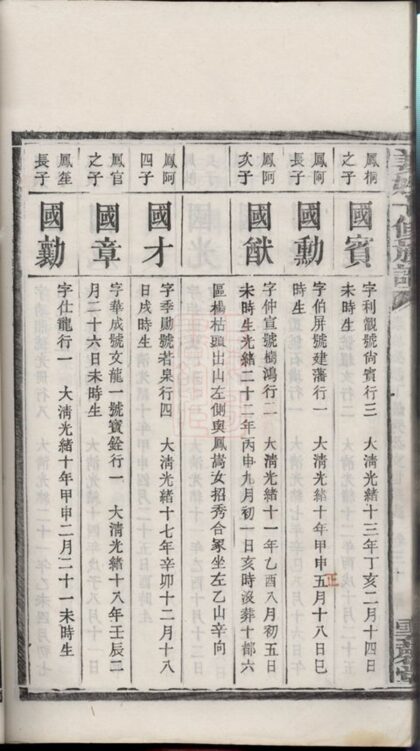 鳳桐之子
國賓
字利觀號尚賓行三 大清光緒十三年丁亥二月十四日
未時生
鳳阿長子
國勳
字伯屏號建藩行一 大清光緒十年甲申五月十八日巳
時生
正
鳳阿次子
國猷
字仲宣號楨鴻行二 大清光緒十一年乙酉八月初五日
未時生光緒二十二年丙申九月初一日亥時沒葬十都六
區楊枯頭出山左側與鳳嵩女招秀合冢坐乙山辛向
鳳阿四子
國才
字季勳號若臬行四 大清光緒十七年辛卯十二月十八
日戌時生
鳳官之子
國章
字華成號文龍一號寶銓行一 大清光緒十八年壬辰二
月二十六日未時生
鳳笙長子
國勤
字仕龍行一 大清光緒十年甲申二月二十一未時生